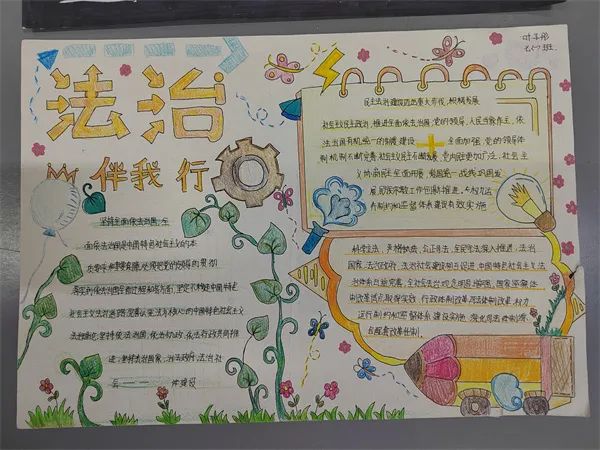 叶子彤
七(7)班
法治
伴我行
民主法治建设迈出重大步伐，积极发展
社会主义民主政治，推进全面依法治国，党的领导、人民当家作主、依
法治国有机统一的制度建设全面加强，党的领导体
制机制不断完善，社会主义民主不断发展，党内民主更加广泛，社会主
义协商民主全面开展，爱国统一战线巩固发
展，民族宗教工作创新推进
科学立法、严格执法、公正司法、全民守法深入推进，法治
国家、法治政府、法治社会建设相互促进，中国特色社会主义法
治体系日益完善，全社会法治观念明显增强，国家监察体
制改革试点取得实效，行政体制改革、司法体制改革、权力
运行制约和监督体系建设有效实施
坚持全面依法治国，全
面依法治国是中国特色社会主义的本
质要求和重要保障，必须把党的领导贯彻
落实到依法治国全过程和各方面，坚定不移走中国特色
社会主义法治道路，完善以宪法为核心的中国特色社会主义
法治体系，坚持依法治国、依法执政、依法行政共同推
进，坚持法治国家、法治政府、法治社
会一体建设